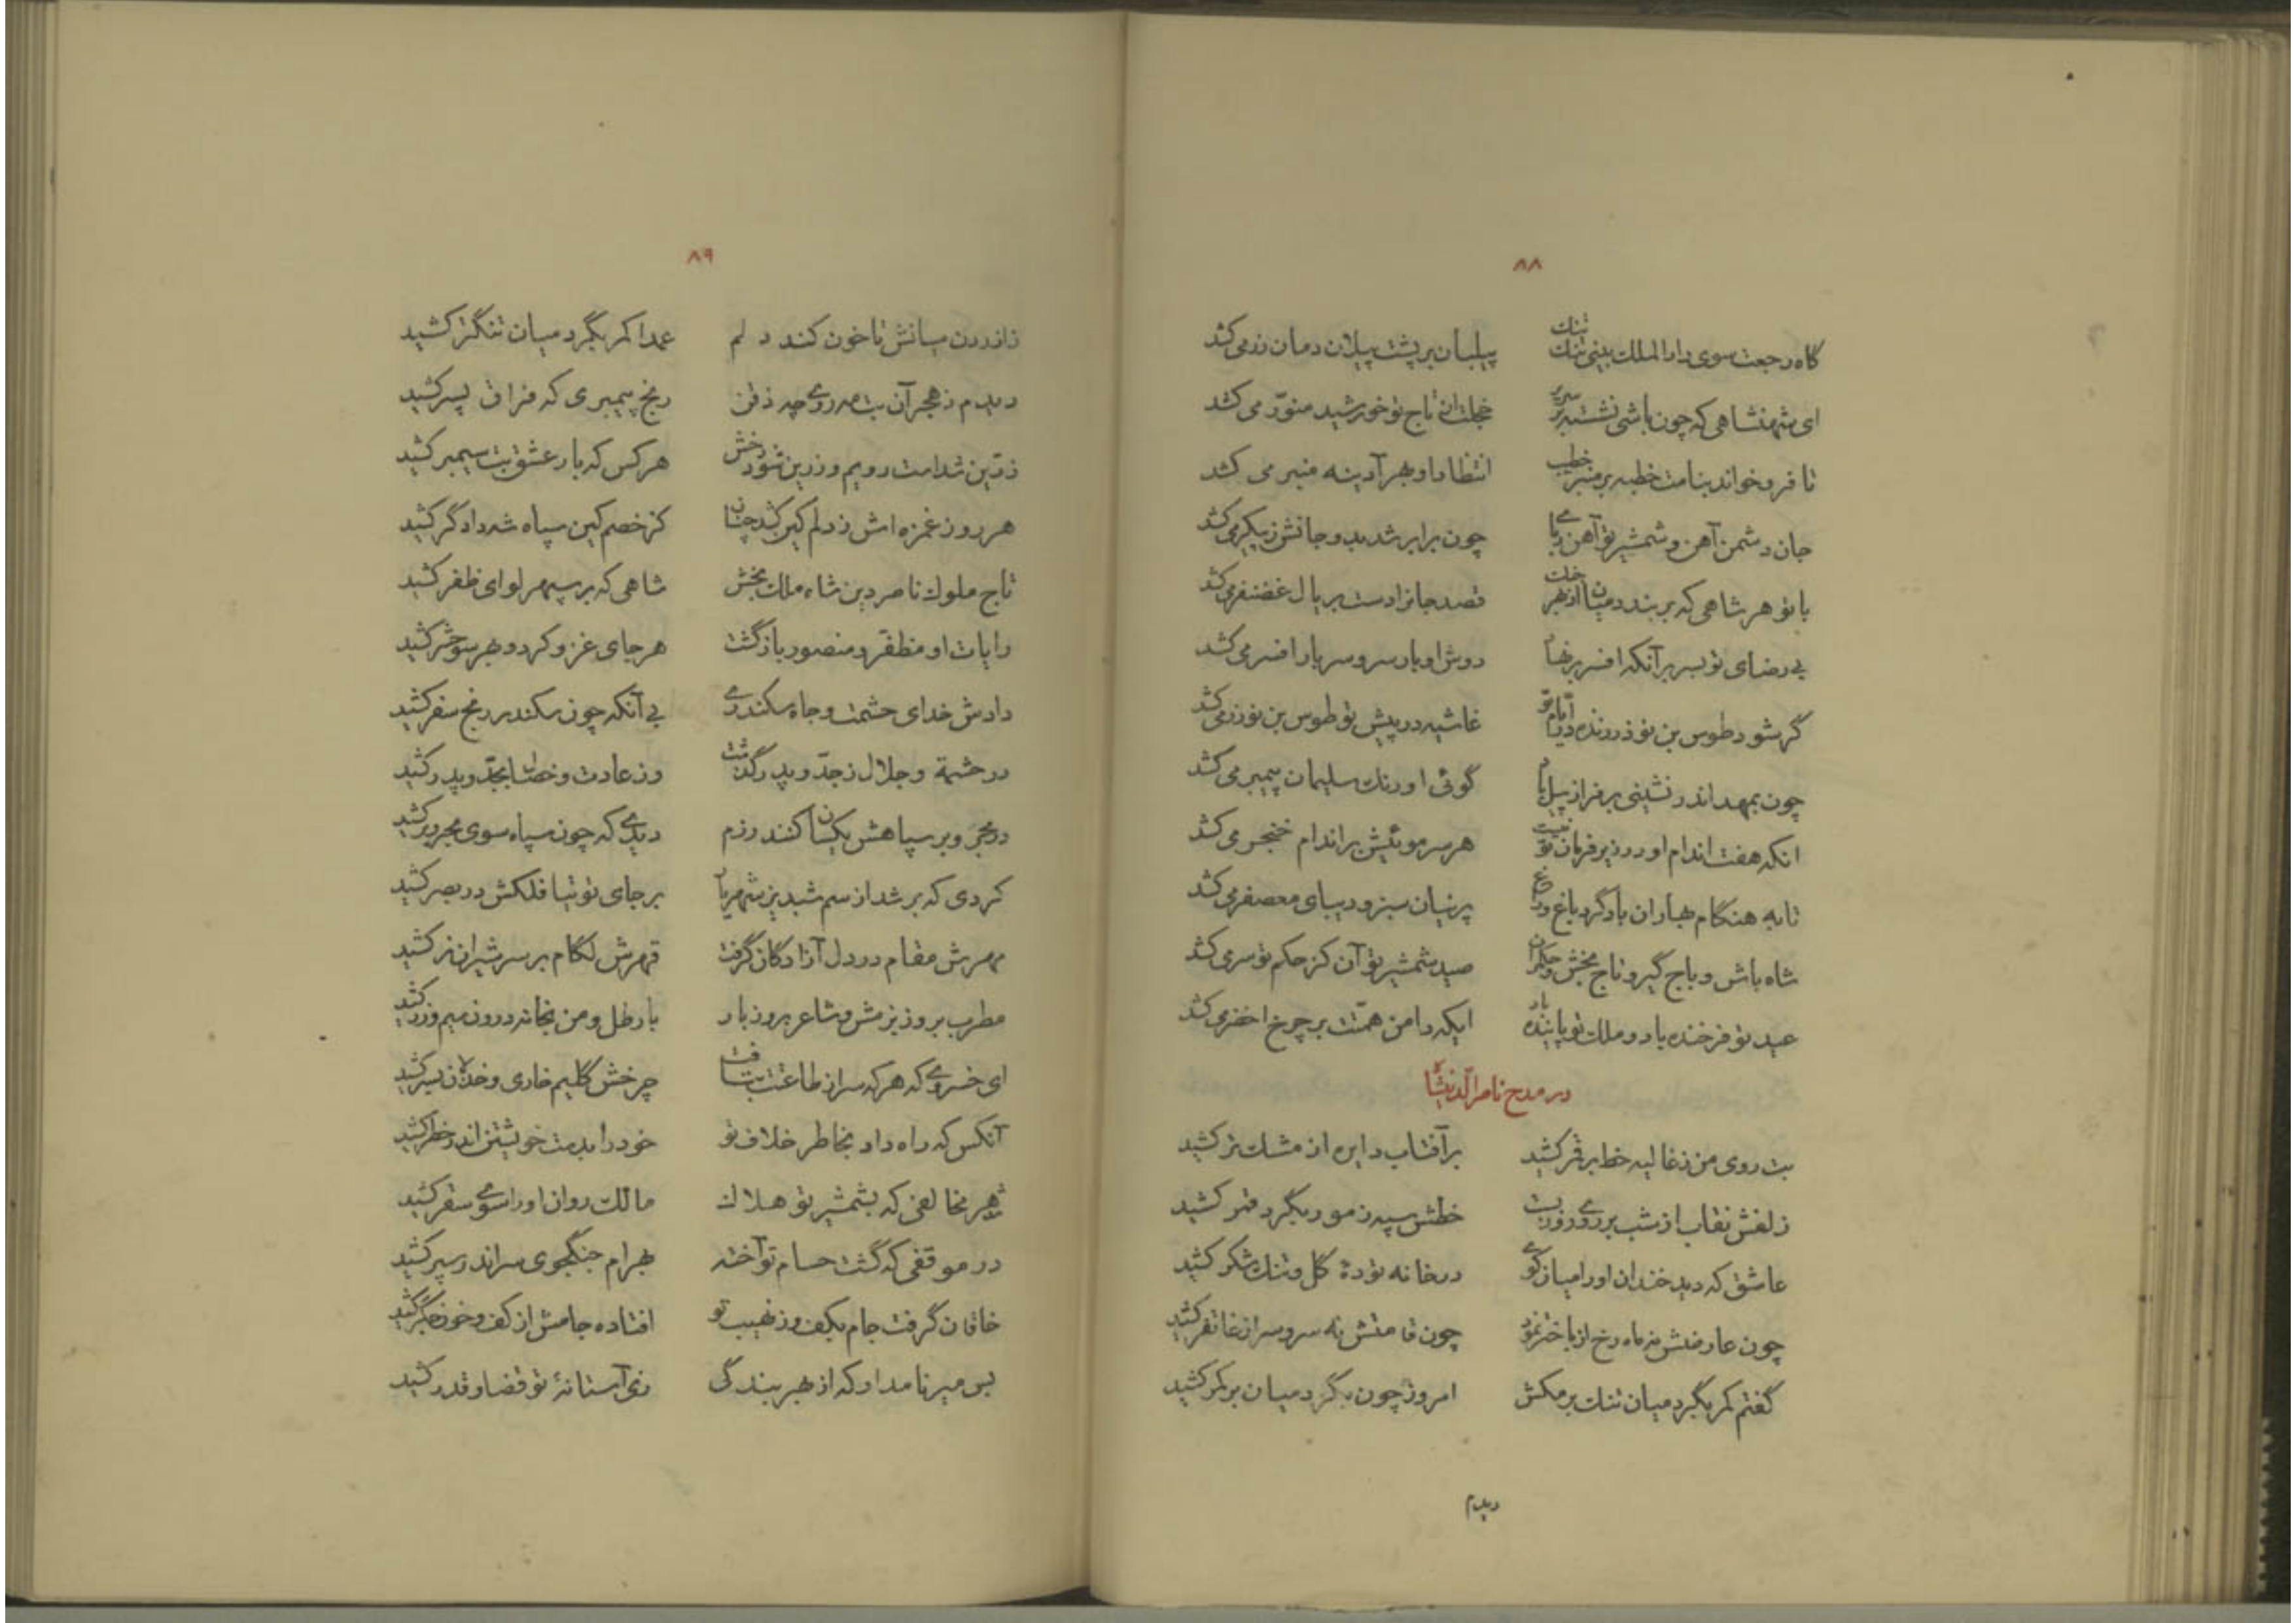 ۸۸
گاه رجعت سوی دارالملک بینی تنک تنک پیلبان بر پشت پیلان دمان زر می کشد
ای شهنشاهی که چون باشی نشسته بر سریر خجلت از تاج تو خورشید منور می کشد
تا فرو خواند بنامت خطبه بر منبر خطیب انتظار او بهر آدینه منبر می کشد
جان دشمن آهن و شمشیر تو آهن ربای چون برابر شد بدو جانش ز پیکر می کشد
با تو هر شاهی که بر بندد میان از بهر قصد جانرا دست بر یال غضنفر می کشد
بی رضای تو بسر بر آنکه افسر بر نهاد دوش او بار سر و سر بار افسر می کشد
گر شود طوس بن نوذر زنده در ایام تو غاشیه در پیش تو طوس بن نوذر می کشد
چون بمهد اندر نشینی بر فراز پیل بام گوئی اورنک سلیمان پیمبر می کشد
انکه هفت اندام او در زیر فرمان تو نیست هر سر موئیش بر اندام خنجر می کشد
تا به هنگام بهاران باد گرد باغ و راغ پرنیان سبز و دیبای معصفر می کشد
شاه باش و باج گیر و تاج بخش و حکمران صید شمشیر تو آن کز حکم تو سر می کشد
عید تو فرخنده باد و ملک تو پاینده باد ایکه دامن همتت بر چرخ اخضر می کشد
در مدح ناصرالدینشاه
بت روی من ز غالیه خط بر قمر کشید بر آفتاب دایره از مشک تر کشید
زلفش نقاب از شب بر روی روز بست خطش سپه ز مور بگرد قمر کشید
عاشق که دید خندان او را میان کوی در خانه تودهٔ گل و تنک شکر کشید
چون عارضش نه ماه رخ از باختر نمود چون قامتش نه سرو سر از غاتفر کشید
گفتم کمر بگرد میان تنک بر مکش امروز چون بگرد میان بر کمر کشید
دیدم
۸۹
زازردن میانش تا خون کند دلم عمدا کمر بگرد میان تنگتر کشید
دیدم ز هجر آن بت مه روی چه ذقن رنج پیمبری که فراق پسر کشید
زرین شد است رویم و زرین شود رخش هر کس که بار عشق بت سیمبر کشید
هر روز غمزه اش ز دلم کین کشد چنان کز خصم کین سپاه شه دادگر کشید
تاج ملوک ناصر دین شاه ملک بخش شاهی که بر سپهر لوای ظفر کشید
رایات او مظفر و منصور بازگشت هر جای غزو کرد و بهر سو حشر کشید
دادش خدای حشمت و جاه سکندری بی آنکه چون سکندر رنج سفر کشید
در حشمة و جلال ز جد و پدر گذشت وز عادت و خصال بجد و پدر کشید
در بحر و بر سپاهش یکسان کنند رزم دیدی که چون سپاه سوی بحر و بر کشید
کردی که بر شد از سم شبدیز شهریار بر جای توتیا فلکش در بصر کشید
مهرش مقام در دل آزادگان گرفت قهرش لگام بر سر شیران نر کشید
مطرب بروز بزمش و شاعر بروز بار بار طل و من بخانه درون سیم و زر کشید
ای خسروی که هر که سر از طاعتت بتافت چرخش گلیم خاری و خذلان بسر کشید
آنکس که راه داد بخاطر خلاف تو خود را بدست خویشتن اندر خطر کشید
شد هر مخالفی که بشمشیر تو هلاک مالک روان او را سوی سقر کشید
در موقفی که گشت حسام تو آخته بهرام جنگجوی سر اندر سپر کشید
خاقان گرفت جام بکف وز نهیب تو افتاده جامش از کف و خون جگر کشید
بس میر نامدار که از بهر بندگی زی آستانهٔ تو قضا و قدر کشید